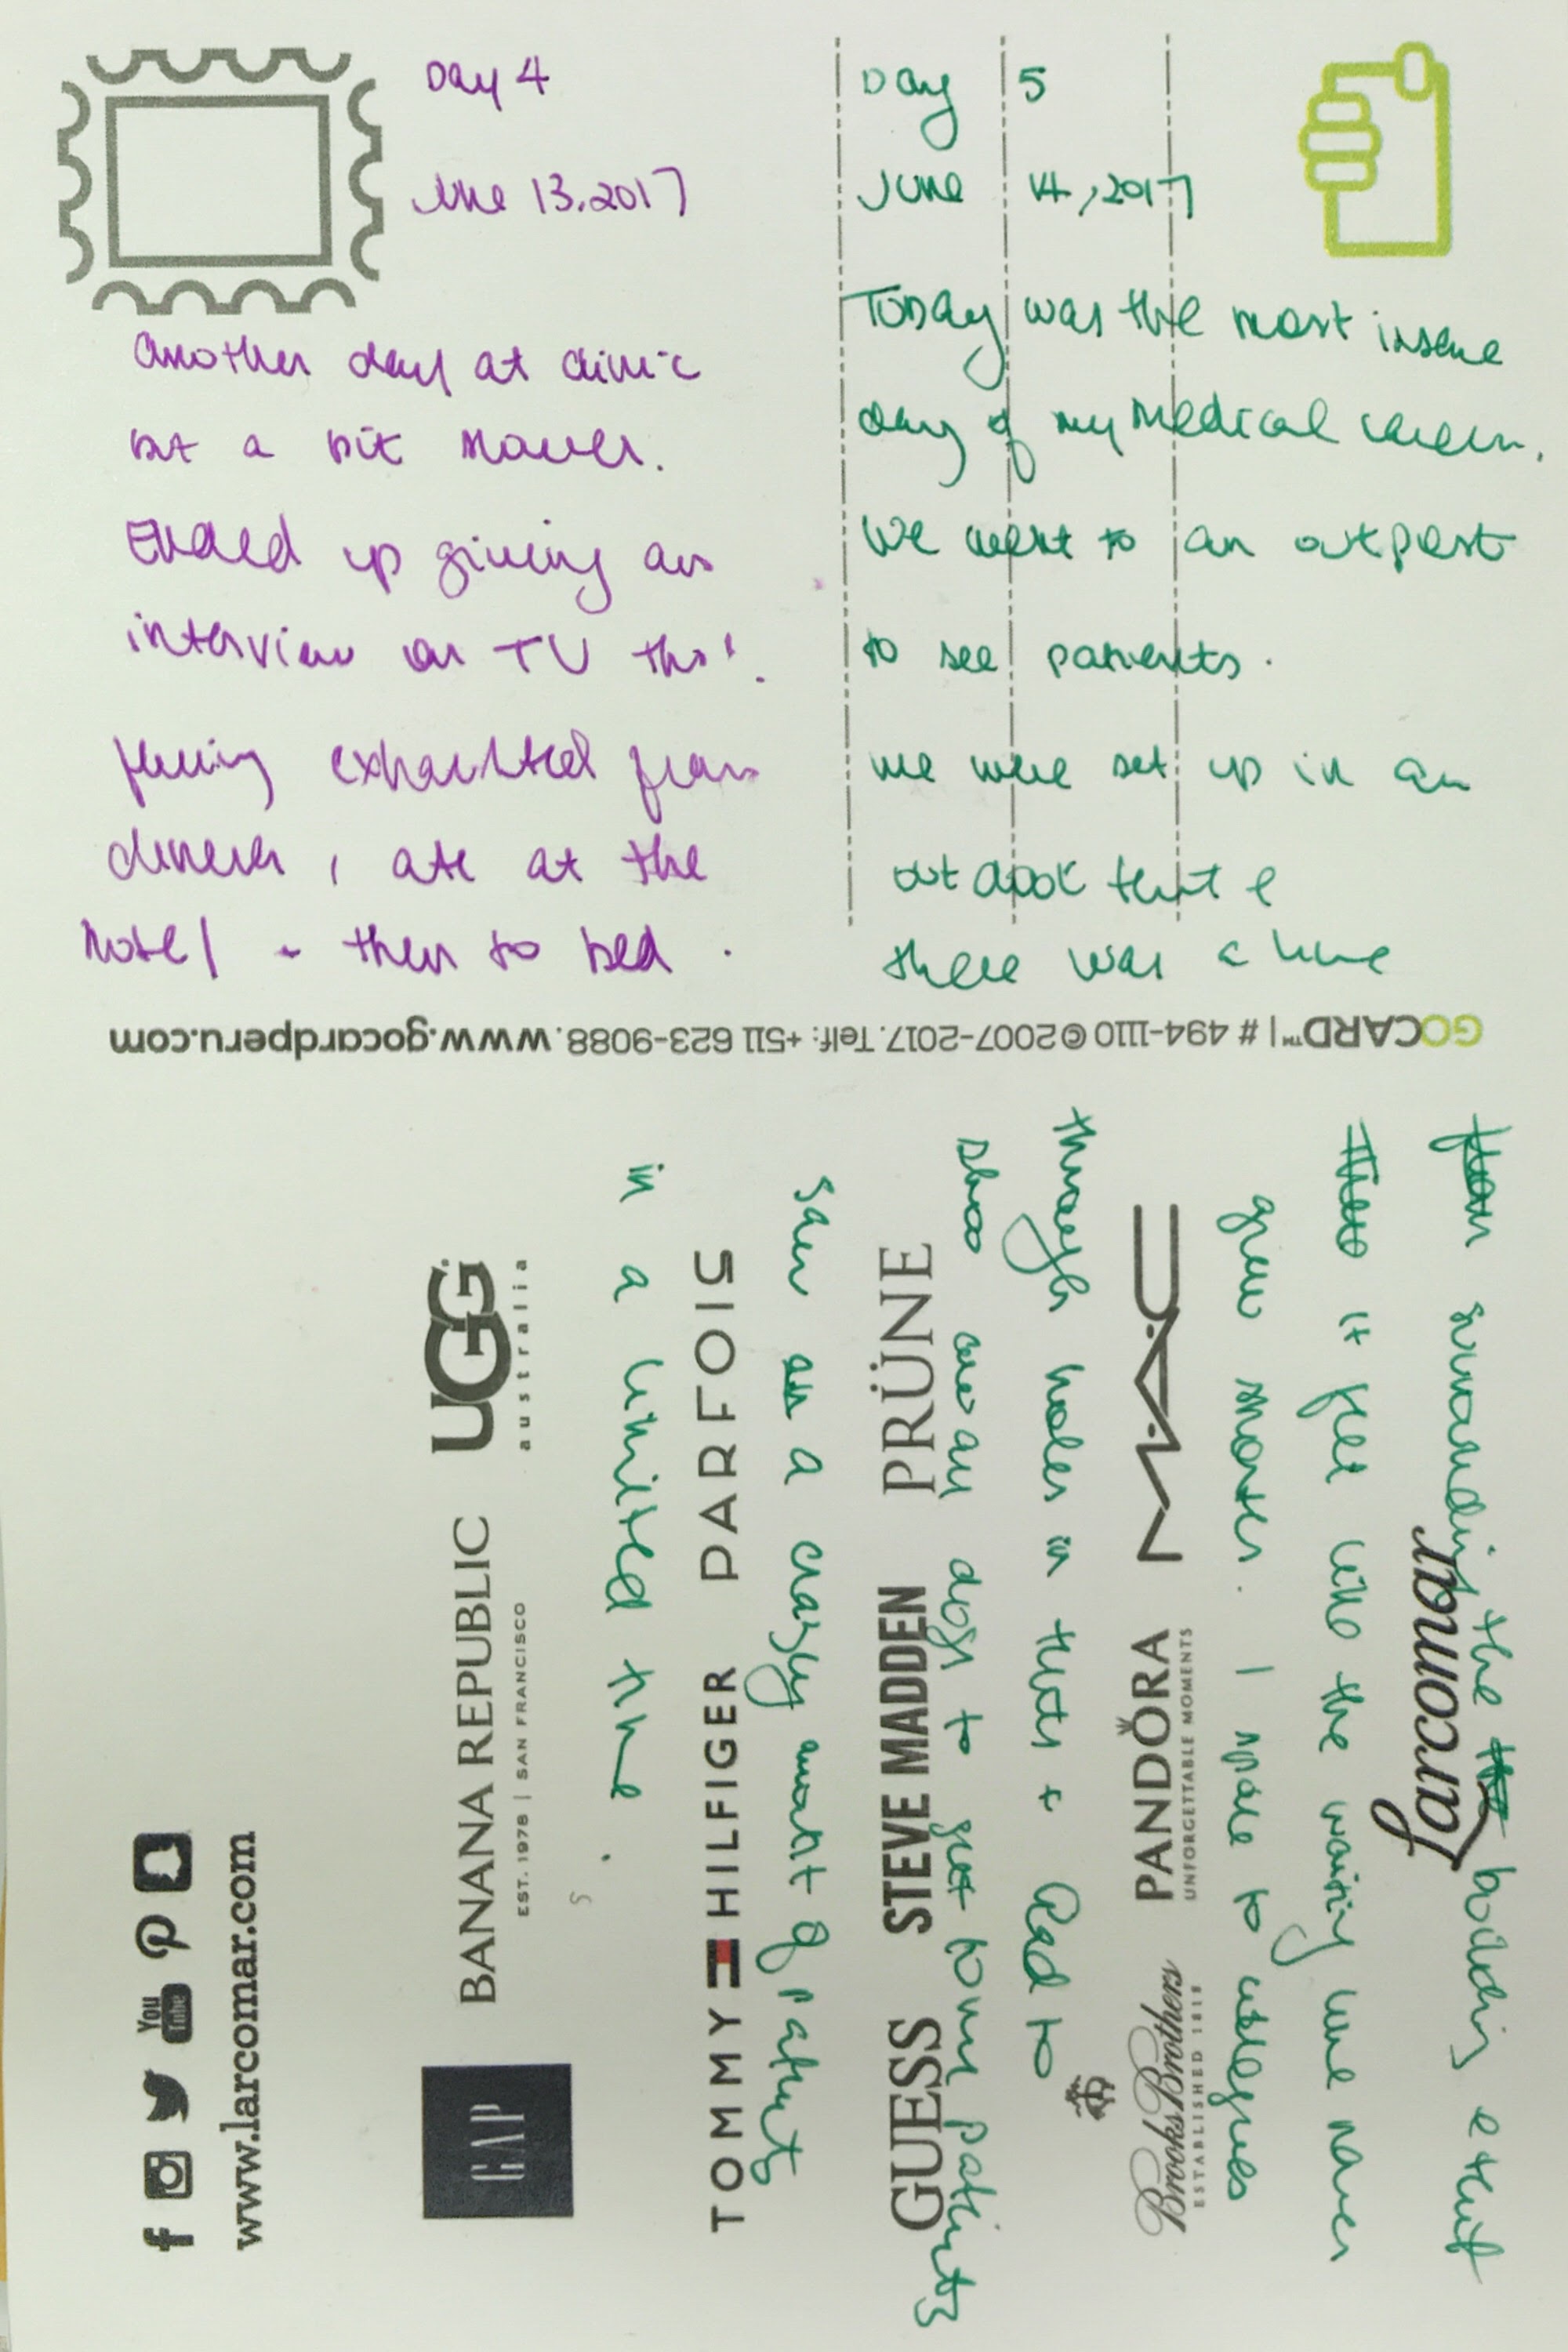 Day 4
June 13, 2017
another day at clinic
but a bit slower.
Ended up giving an
interview on TV tho'.
feeling exhausted from
dinner, ate at the
hotel - then to bed.
Day 5
June 14, 2017
Today was the most insane
day of my medical career.
We went to an outpost
to see patients.
we were set up in an
outdoor tent &
there was a line
GOCARD™ | # 494-1110 © 2007-2017. Telf: +511 623-9088. www.gocardperu.com
surrounding the building & tent
it felt like the waiting line never
grew shorter. I spoke to colleagues
through holes in tents & had to
shoo away dogs to get to my patients
saw a crazy amount of patients
in a limited time.
Larcomar
Brooks Brothers
ESTABLISHED 1818
PANDORA
UNFORGETTABLE MOMENTS
M·A·C
GUESS
STEVE MADDEN
PRÜNE
TOMMY HILFIGER
PARFOIS
GAP
BANANA REPUBLIC
EST. 1978 | SAN FRANCISCO
UGG
australia
You Tube
www.larcomar.com